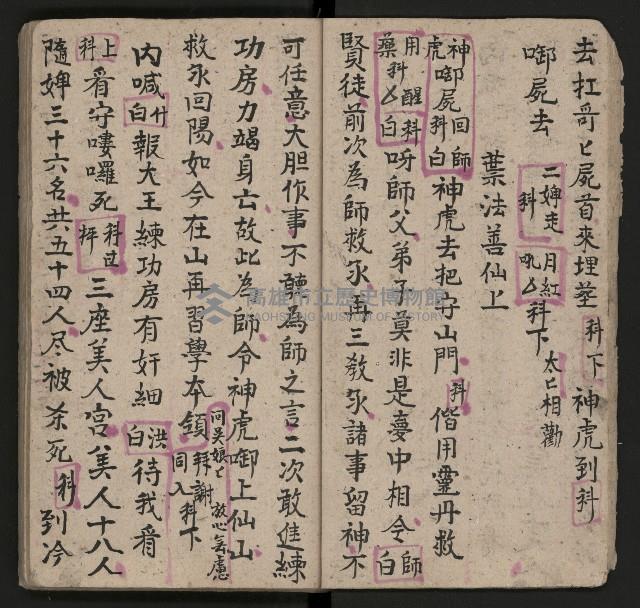 去扛哥〻屍首來埋塟科下神虎到科
啣屍去 二婢走科 月紅吼介科下太〻相勸
葉法善仙上
神啣屍回師虎啣屍科白神虎去把守山門科偕用靈丹救
用醒科藥科介白呀師父弟子莫非是夢中相会師白
賢徒前次為師救汆再三教汆諸事留神不
可任意大胆作事不聽為師之言二次敢進練
功房力竭身亡故此為師令神虎啣上仙山
救汆回陽如今在山再習學本領拜謝科下同入
問吳娘〻放心無慮
內喊什白報大王練功房有奸細洪白待我看
上科看守嘍囉死科过抨三座美人宮美人十八人
隨婢三十六名共五十四人尽被杀死科到冷
高雄市立歷史博物館
KAOHSIUNG MUSEUM OF HISTORY